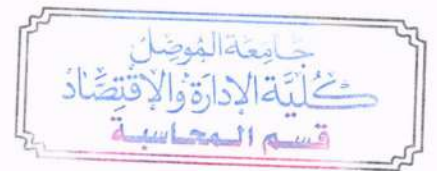 جَامِعَة المُوصِل
كُلِيَّة الإدَارَة وَالإقْتِصَادْ
قسم المحاسبة